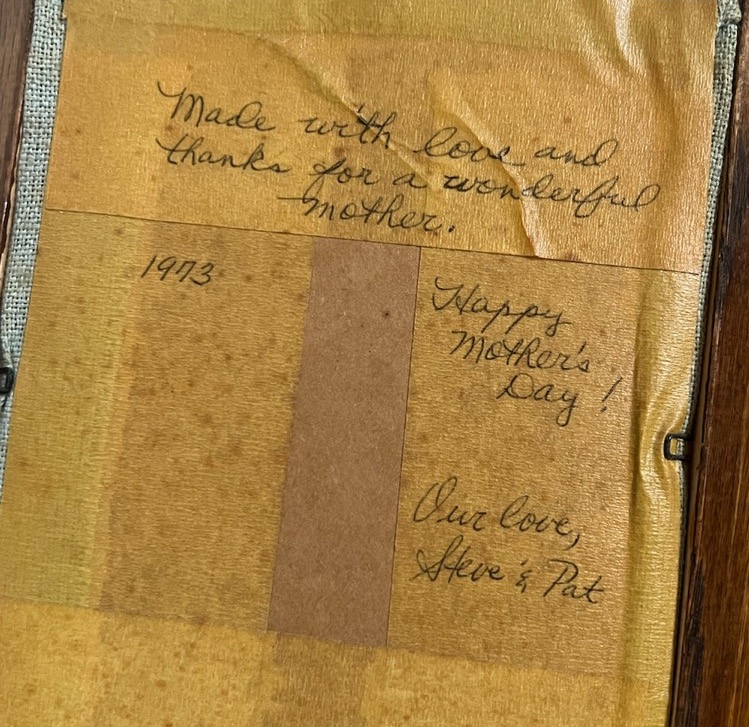 Made with love and
thanks for a wonderful
mother.
1973
Happy
Mother's
Day!
Our love,
Steve & Pat